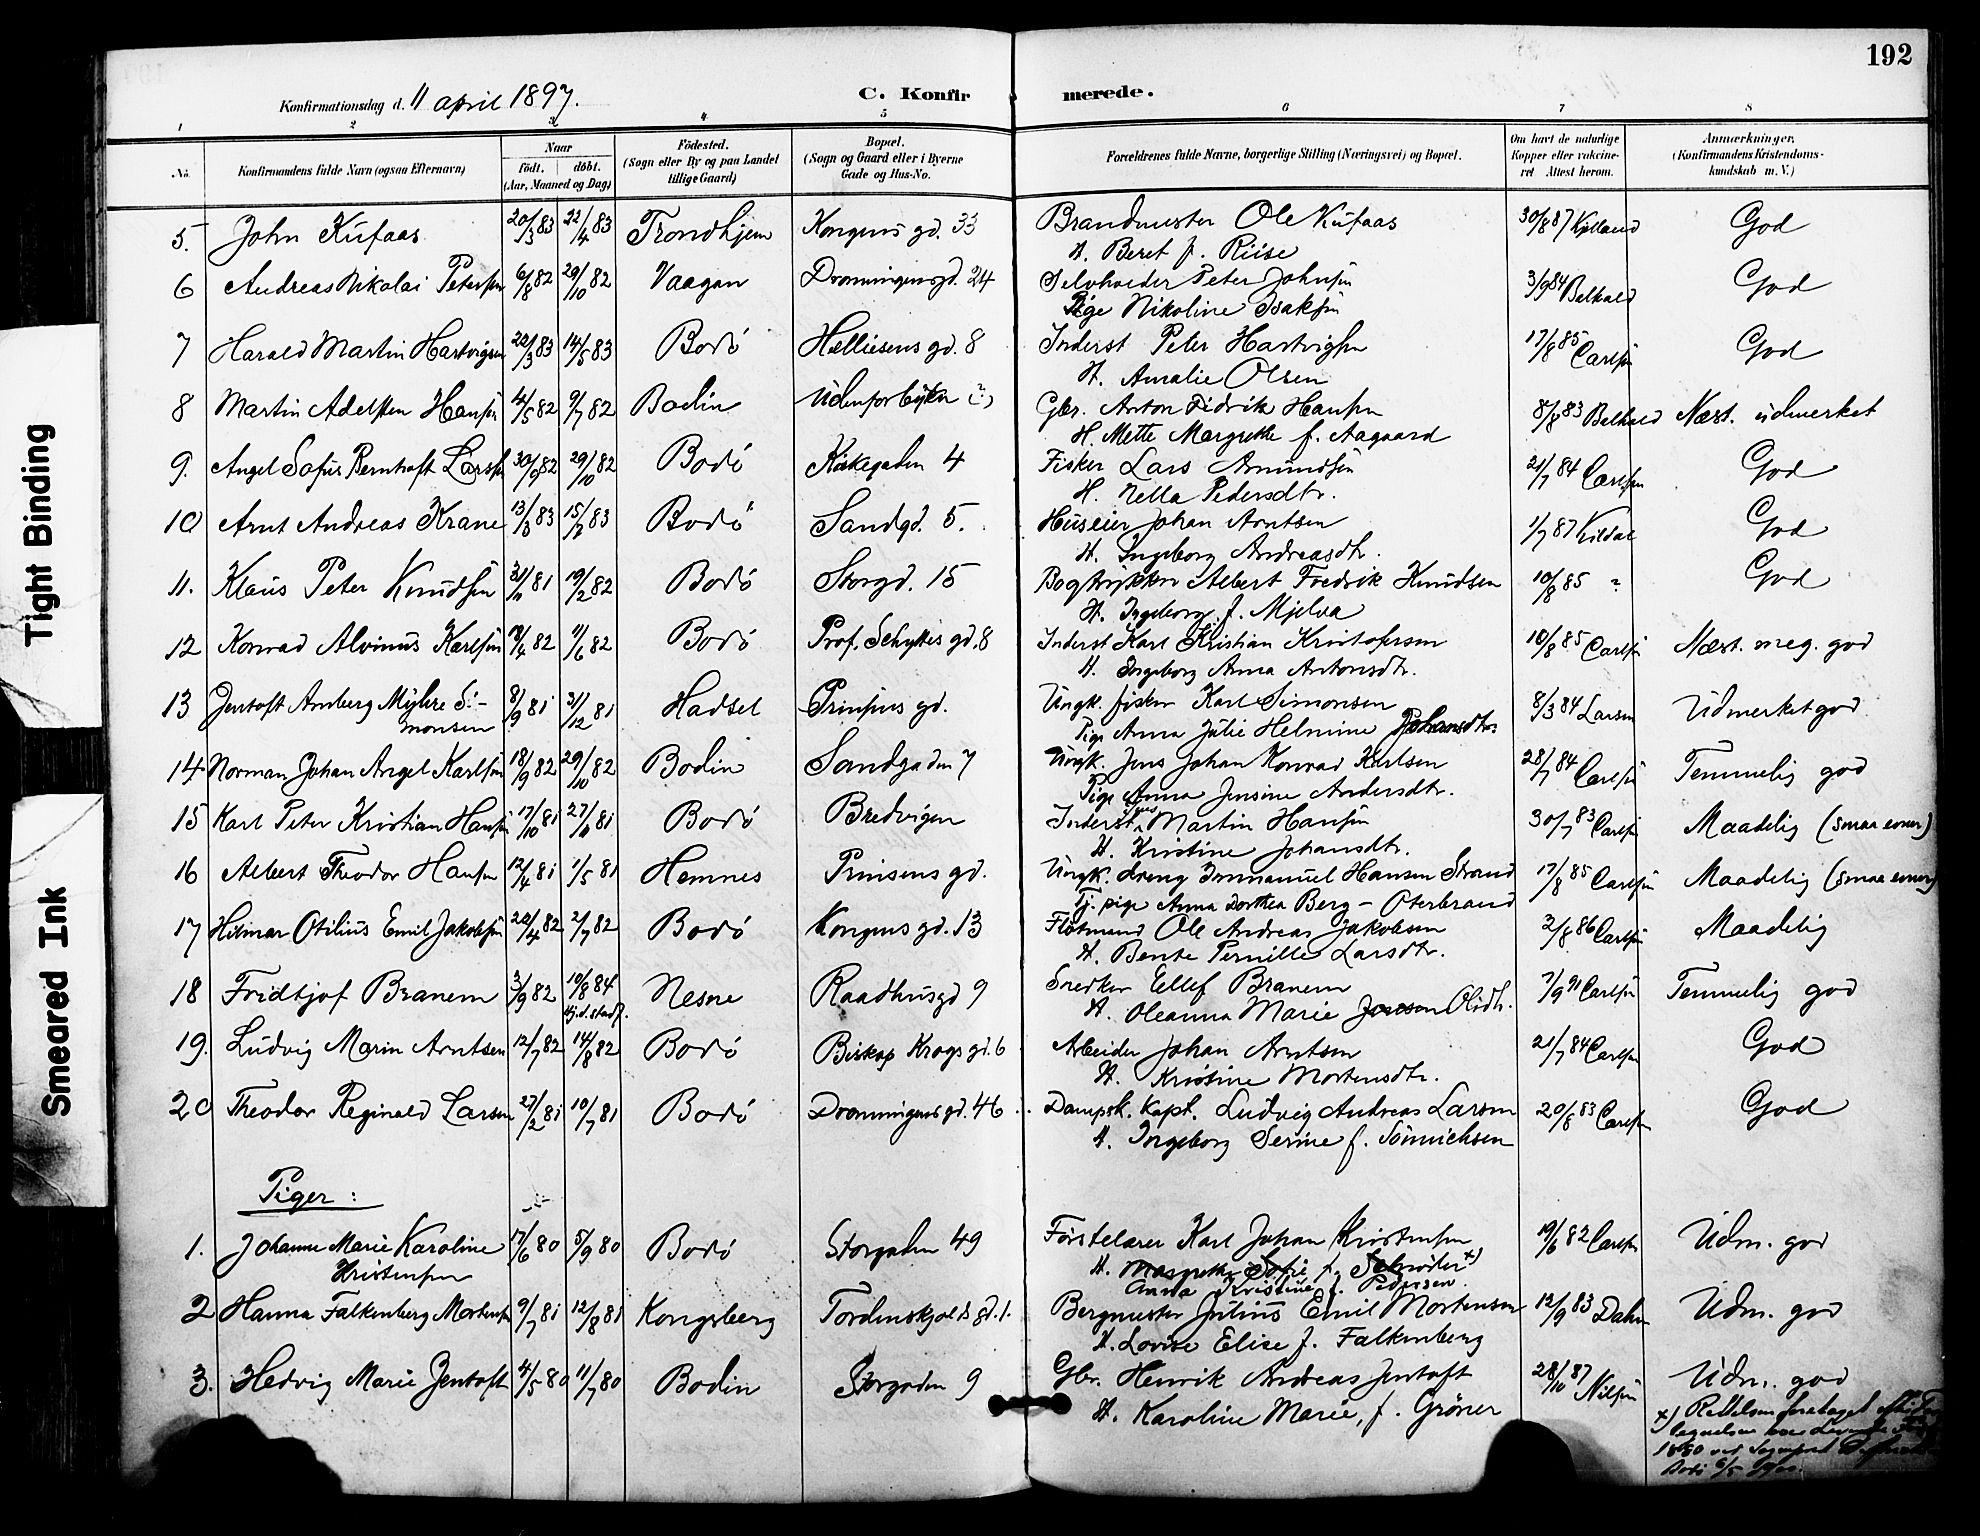 192
Konfirmationsdag d. 11 april 1897.
C. Konfirmerede.
1 2 3 4 5 6 7 8
No.
Konfirmandens fulde Navn (ogsaa Efternavn)
Naar
født. døbt.
(Aar, Maaned og Dag)
Fødested.
(Sogn eller By og paa Landet
tillige Gaard)
Bopæl.
(Sogn og Gaard eller i Byerne
Gade og Hus-No.
Forældrenes fulde Navne, borgerlige Stilling (Næringsvei) og Bopæl.
Om havt de naturlige
Kopper eller vakcine-
ret Attest herom.
Anmærkninger.
(Konfirmandens Kristendoms-
kundskab m. V.)
5. John Kufaas 20/3 83 22/4 83 Trondhjem Kongens gd. 33 Brandmester Ole Kufaas 30/8 87 God
H. Beret f. Riise
6 Andreas Nikolai Petersen 6/8 82 29/10 82 Vaagan Dronningensgd. 24 Selveier Peter Johnsen 3/9 84 God
Pige Nikoline Isaksen
7 Harald Martin Hartvigsen 22/3 83 14/5 83 Bodø Helliesens gd. 8 Inderst Peter Hartvigsen 17/8 85 Carlsen God
H. Amalie Olsen
8 Martin Adelsten Hansen 4/5 82 9/7 82 Bodin Udenfor byen Gbr. Anton Fidrik Hansen 8/8 83 Næst. udmerket
H. Mette Margrethe f. Aagaard
9. Angel Sofus Berntoft Larsen 30/9 82 29/10 82 Bodø Kirkegaden 4 Fisker Lars Amundsen 21/7 84 Carlsen God
H. Nella Pedersdtr.
10 Arnt Andreas Krane 13/3 83 15/7 83 Bodø Sandgd. 5. Huseier Johan Arntsen 1/7 87 Kildal God
H. Ingeborg Andreasdtr.
11. Klaus Peter Knudsen 21/11 81 19/2 82 Bodø Storgd. 15 Bogtrykker Albert Fredrik Knudsen 10/8 85 ? God
H. Ingeborg f. Mjelva
12 Konrad Alvinus Karlsen 19/4 82 11/6 82 Bodø Prof. Schyttes gd. 8 Inderst Karl Kristian Kristofersen 10/8 85 Carlsen Næst. meg. god
H. Ingeborg Anna Antonsdtr.
13 Jentoft Arnberg Myhre Si-
monsen 8/9 81 31/12 81 Hadsel Prinsens gd. Ungk. fisker Karl Simonsen 8/3 84 Larsen Udmerket god
Pige Anna Julie Helmine Johansdtr.
14 Norman Johan Angel Karlsen 18/9 82 29/10 82 Bodin Sandgaden 7 Ungk. Jens Johan Konrad Karlsen 28/7 84 Carlsen Temmelig god
Pige Anna Jensine Andersdtr.
15 Karl Peter Kristian Hansen 17/10 81 27/11 81 Bodø Bredvigen Inderst Martin Hansen 30/7 83 Carlsen Maadelig (smaa evner)
H. Kristine Johansdtr.
16 Albert Theodor Hansen 12/4 81 1/5 81 Hemnes Prinsens gd. Ungk. dreng Immanuel Hansen Strand 17/8 85 Carlsen Maadelig (smaa evner)
Tj. pige Anna Dorthea Berg - Oterbrand
17 Hilmar Otilius Emil Jakobsen 20/4 82 2/7 82 Bodø Kongens gd. 13 Fløtmand Ole Andreas Jakobsen 2/8 86 Carlsen Maadelig
H. Bente Pernille Larsdtr.
18 Fridtjof Branem 3/9 82 10/8 84 Nesne Raadhusgd 9 Snedker Ellef Branem 7/9 91 Carlsen Temmelig god
hj.d. stadf. H. Oleanna Marie Jensen Olsdtr.
19. Ludvig Marin Arntsen 12/7 82 14/8 82 Bodø Biskop Krogs gd. 6 Arbeider Johan Arntsen 21/7 84 Carlsen God
H. Kristine Mortensdtr.
20 Theodor Reginald Larsen 27/2 81 10/7 81 Bodø Dronningens gd. 46 Dampsk. Kapt. Ludvig Andreas Larsen 20/8 83 Carlsen God
H. Ingeborg Serine f. Sønnichsen
Piger:
1. Johanne Marie Karoline
Kristensen 17/6 80 5/9 80 Bodø Storgaden 49 Førstelærer Karl Johan Kristensen 19/6 82 Carlsen Udm. god
H. Margrethe Sofie f. Schrøder x)
Anna Kristine f. Pedersen
2 Hanna Falkenberg Mortensen 9/7 81 12/8 81 Kongsberg Tordenskjolds gd. 1. Bergmester Julius Emil Mortensen 12/9 83 Dahm Udm. god
H. Lovise Elise f. Falkenberg
3. Hedvig Marie Jentoft 4/5 80 11/7 80 Bodin Storgaden 9 Gbr. Henrik Andreas Jentoft 28/10 87 Nilsen Udm. god
H. Karoline Marie, f. Grøner
x) Rettelsen foretaget
Bodø 6/5
Tight Binding
Smeared Ink